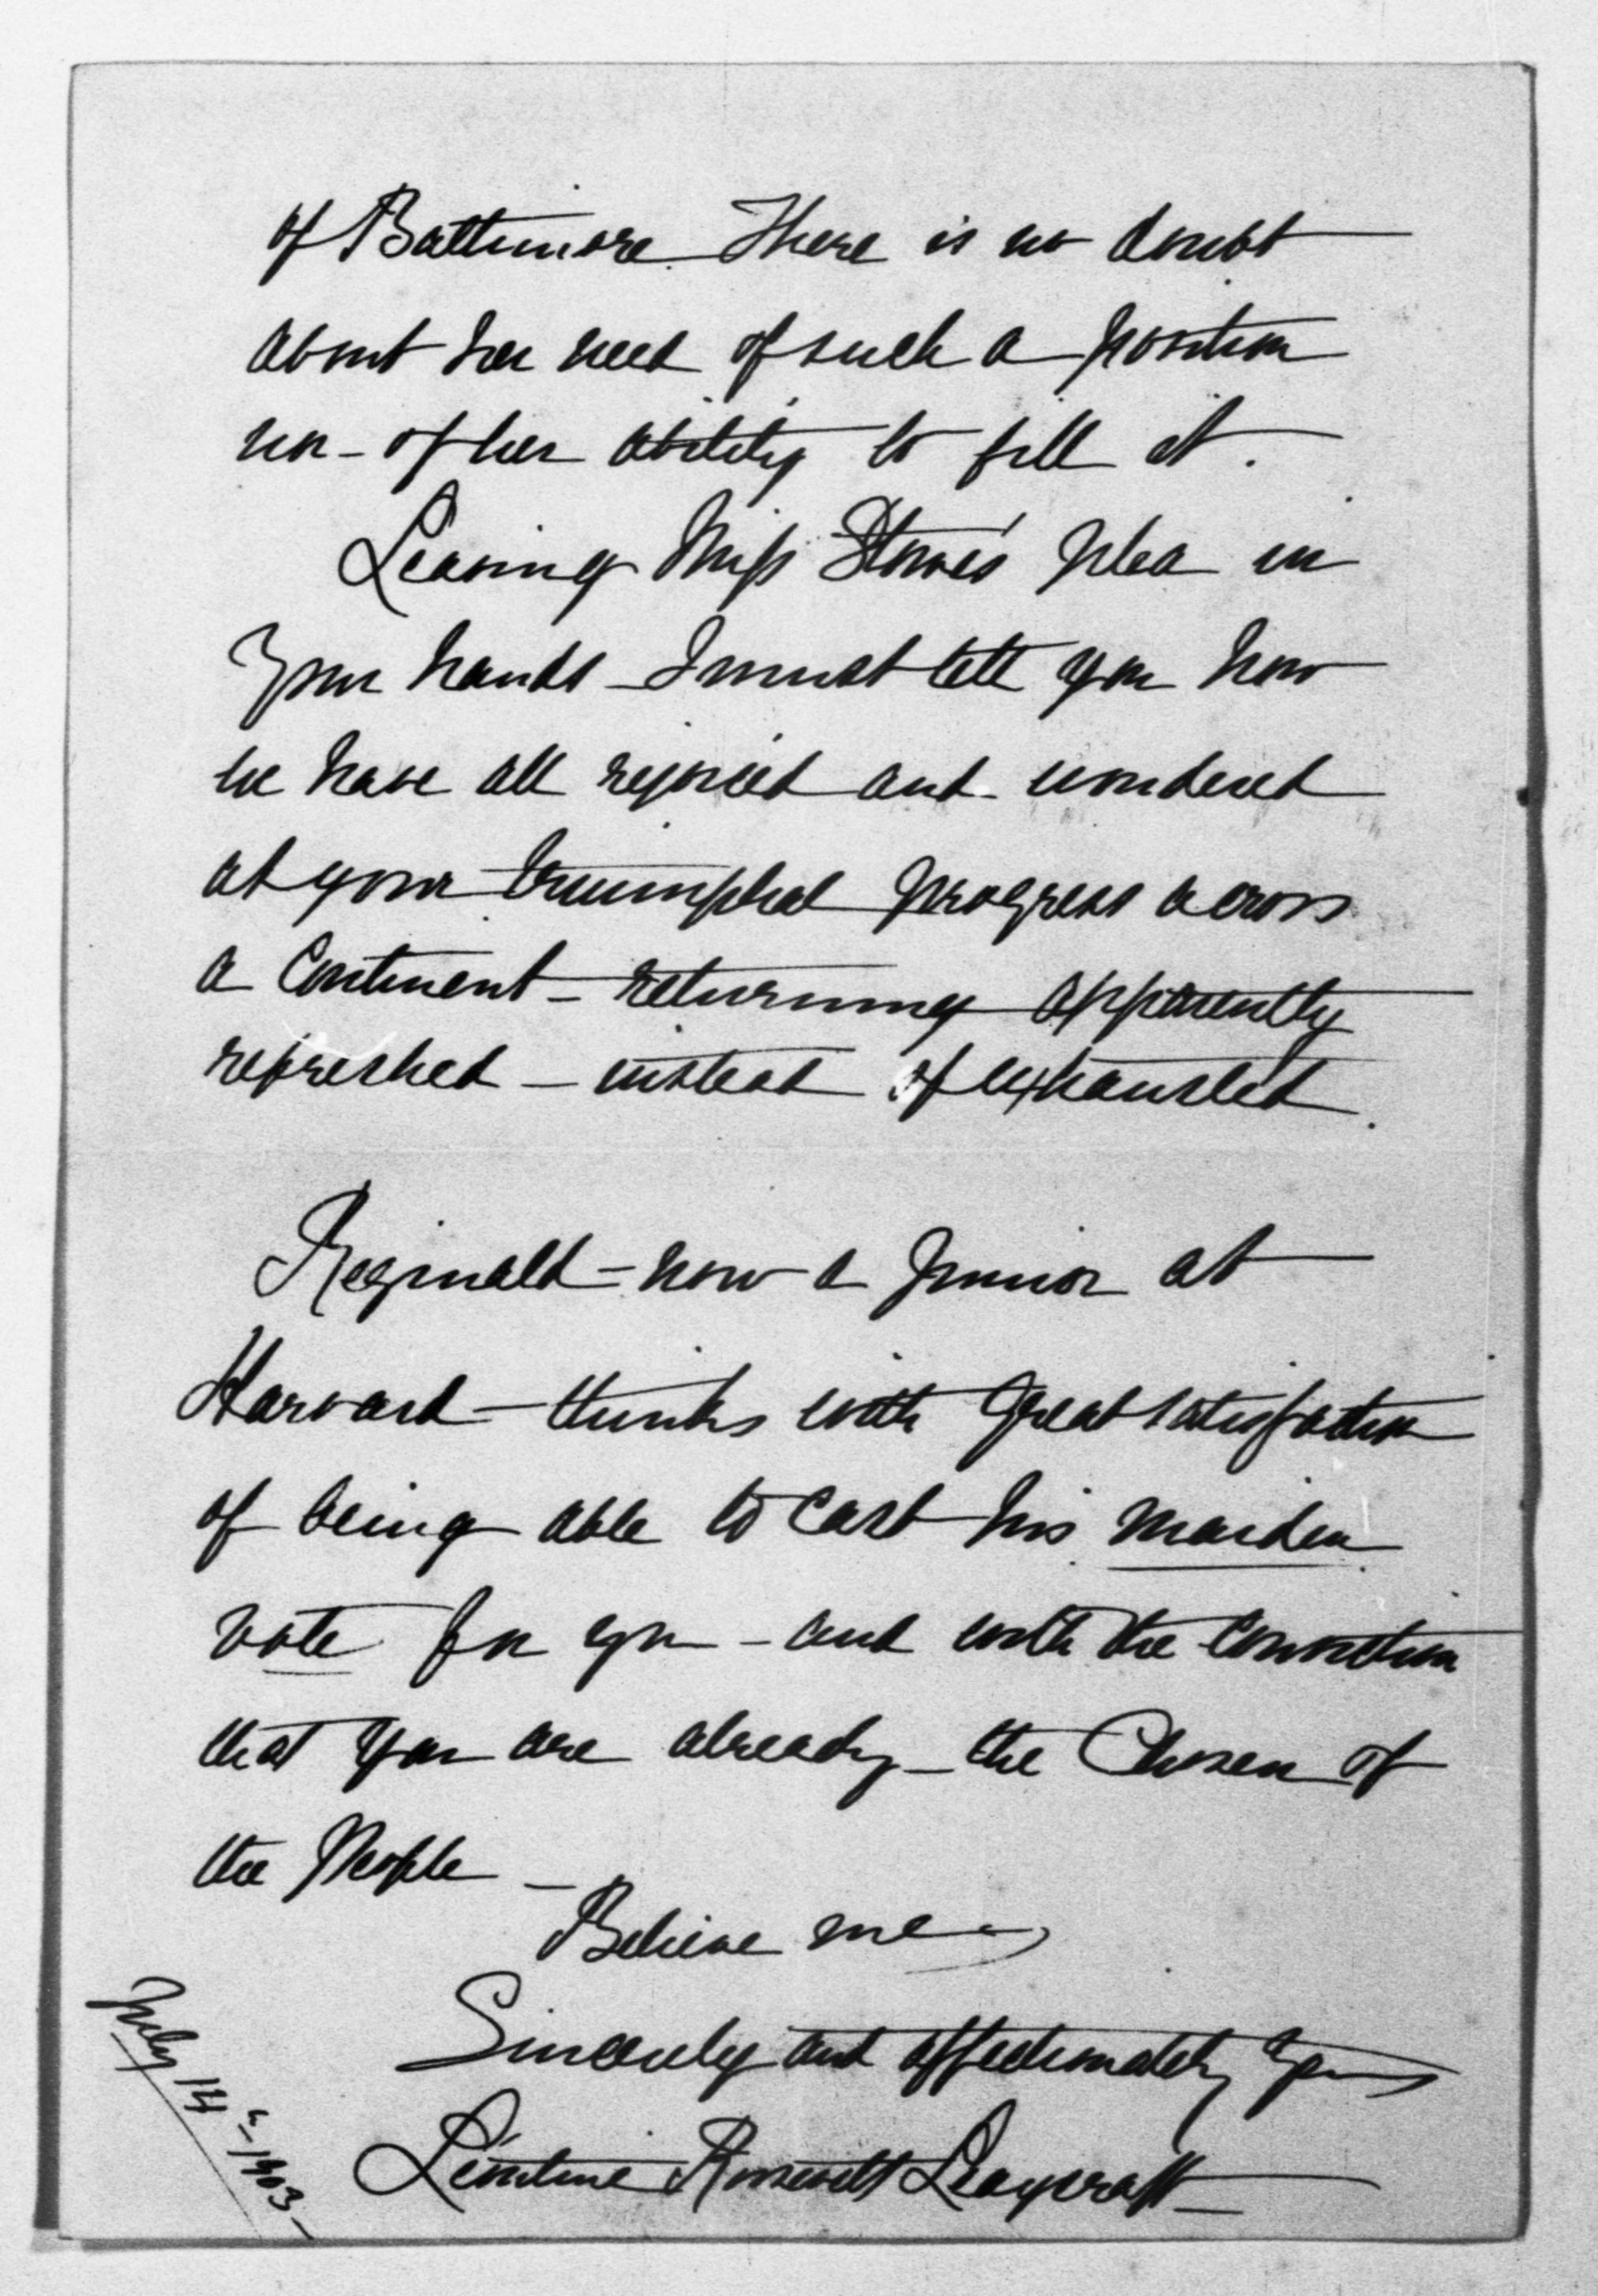 of Baltimore. There is no doubt
about her need of such a position
nor - of her ability to fill it.
Leaving Miss Stowe's plea in
Your hands - I must tell you how
we have all rejoiced and wondered
at your triumphal progress across
a Continent - returning apparently
refreshed - instead of exhausted.
Reginald - now a Junior at
Harvard - thinks with great satisfaction
of being able to cast his maiden
vote for you - and with the conviction
that you are already - the Chosen of
the People -
Believe me
Sincerely and affectionately Yours
Léontine Roosevelt Leaycraft
July 14th 1903 -